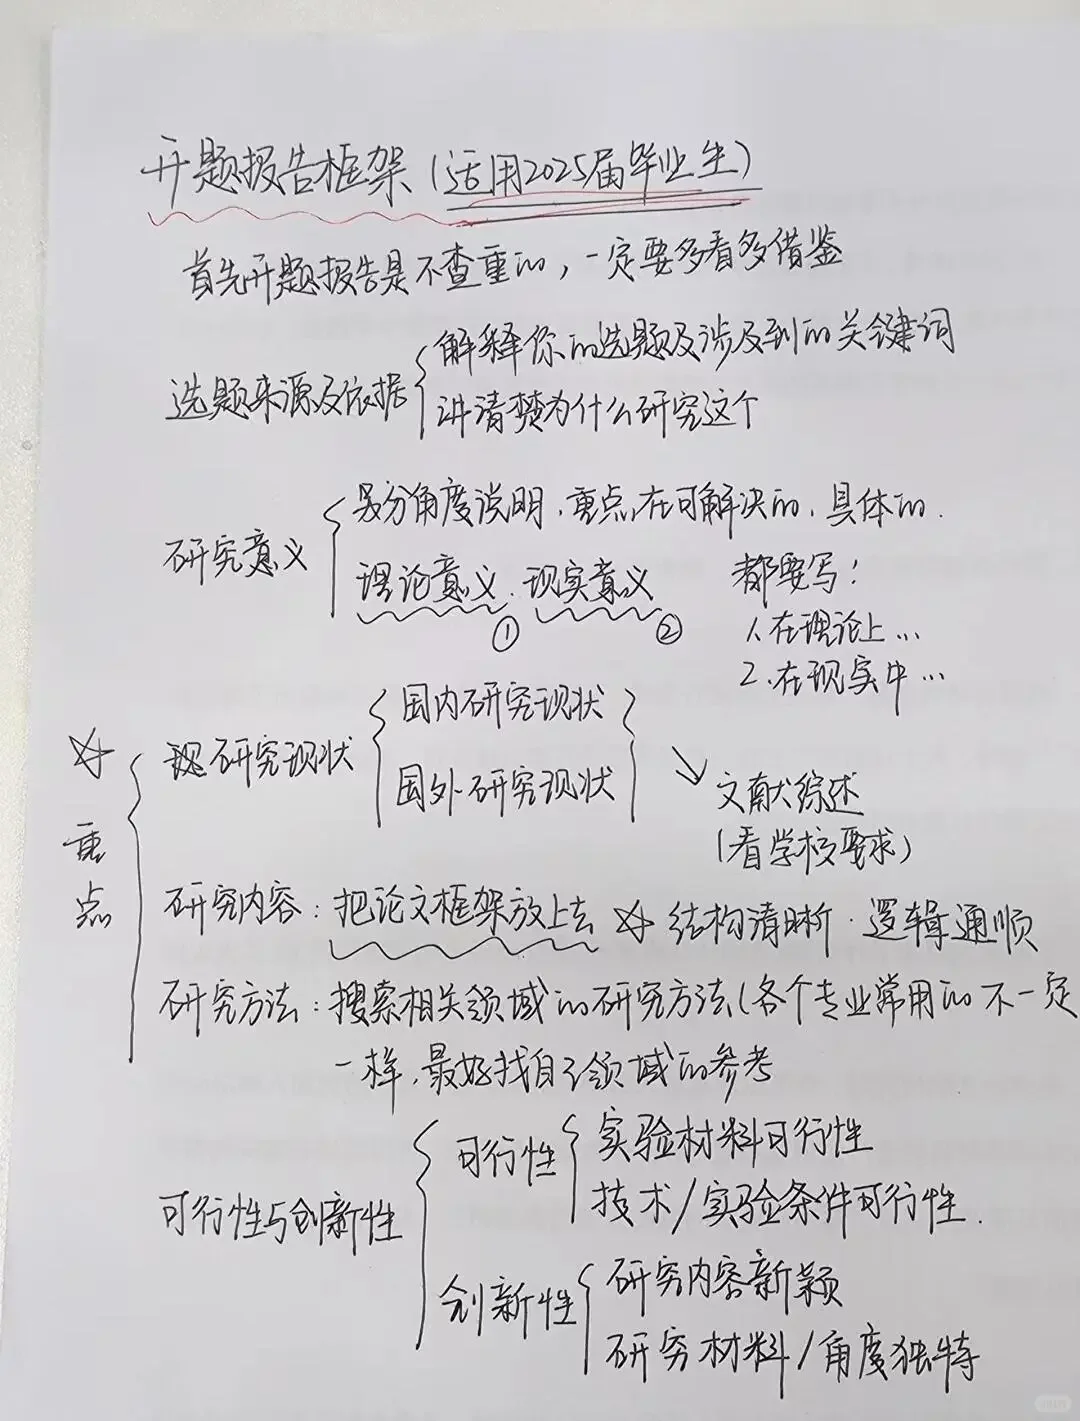 开题报告框架(适用2025届毕业生)
首先开题报告是不查重的,一定要多看多借鉴
选题来源及依据
解释你的选题及涉及到的关键词
讲清楚为什么研究这个
研究意义
另分角度说明,重点在可解决的,具体的.
理论意义.现实意义
① ②
都要写!
1.在理论上…
2.在现实中…
☆重点
研究现状
国内研究现状
国外研究现状
文献综述
(看学校要求)
研究内容:把论文框架放上去 ☆ 结构清晰.逻辑通顺
研究方法:搜索相关领域的研究方法(各个专业常用的不一定
一样,最好找自己领域的参考
可行性与创新性
可行性
实验材料可行性
技术/实验条件可行性.
创新性
研究内容新颖
研究材料/角度独特